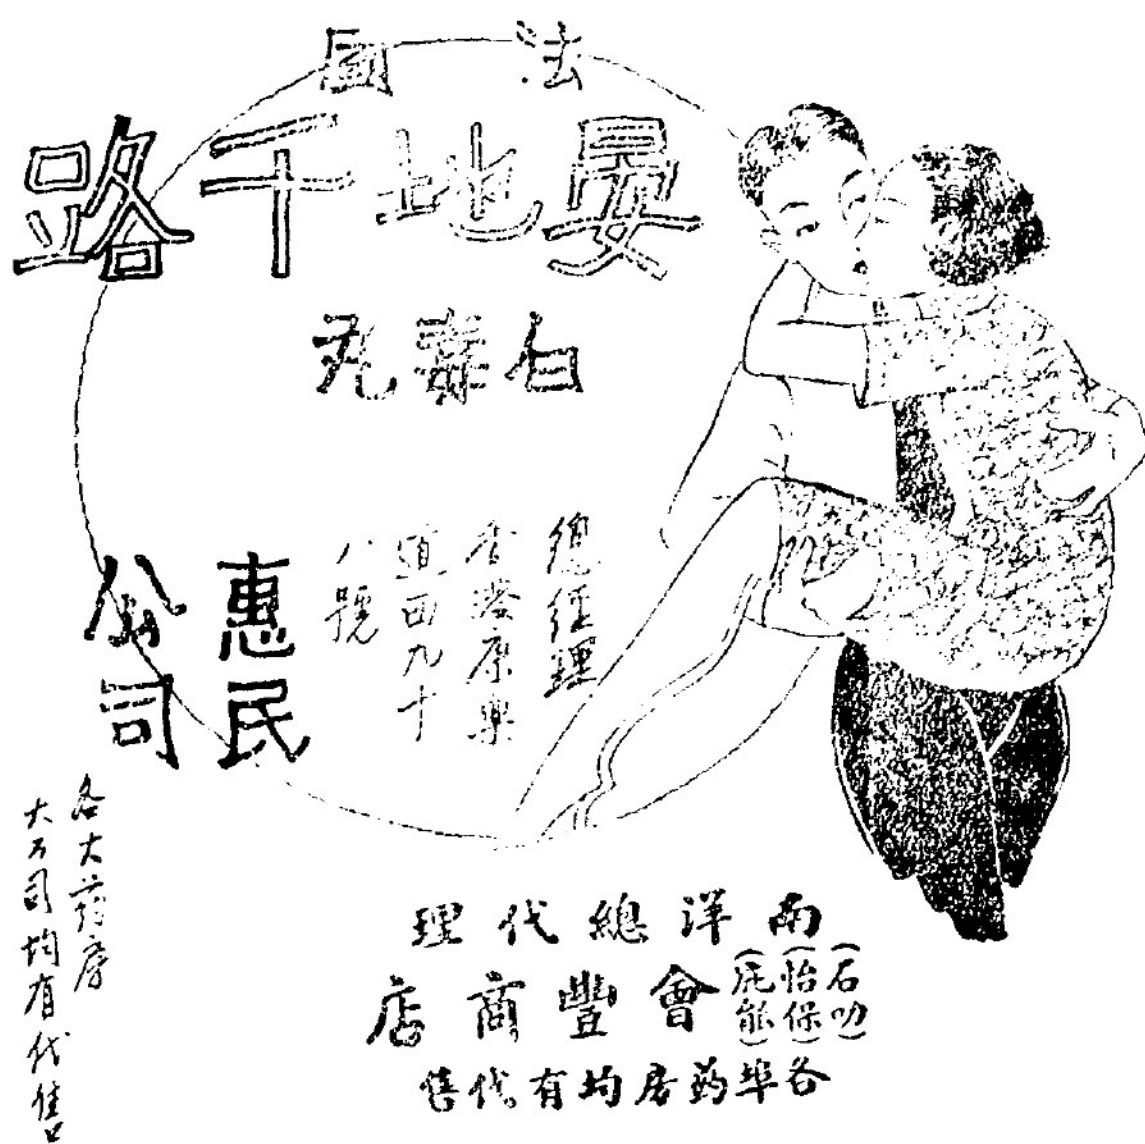 法國
晏地干路
白毒丸
總經理
香港康樂
道西九十
八號
惠民
公司
各大药房
大公司均有代售
南洋總代理
(石叻)
(怡保)
(庇能)
會豐商店
各埠药房均有代售